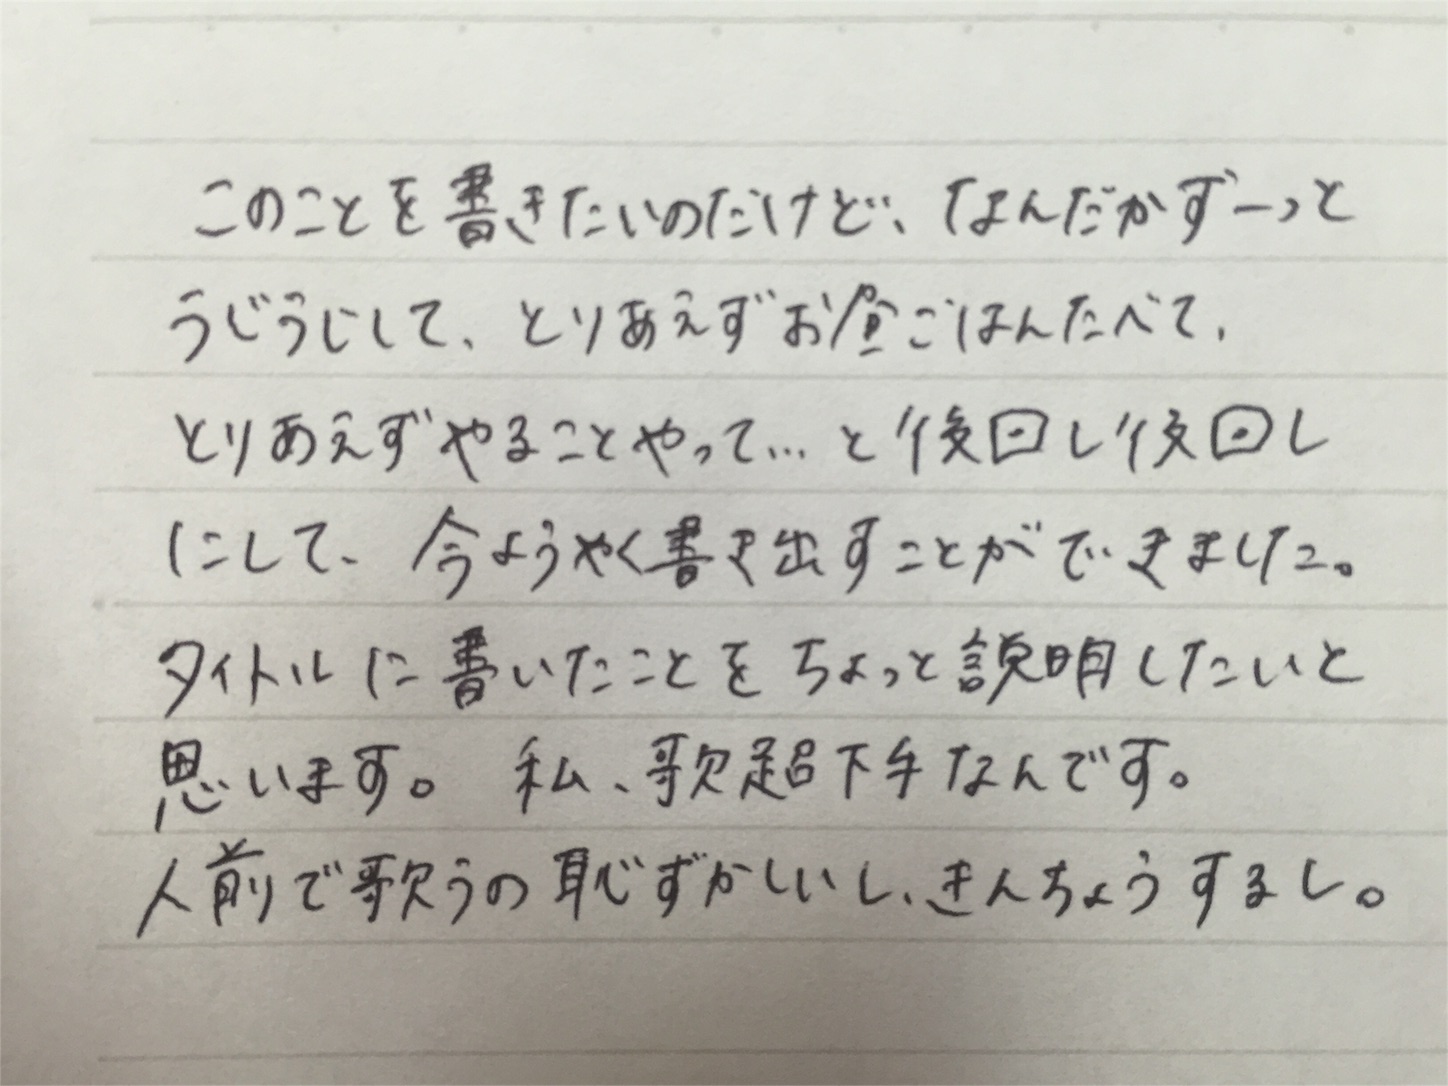 このことを書きたいのだけど、なんだかずーっと
うじうじして、とりあえずお昼ごはんたべて、
とりあえずやることやって…と後回し後回し
にして、今ようやく書き出すことができました。
タイトルに書いたことをちょっと説明したいと
思います。 私、歌超下手なんです。
人前で歌うの恥ずかしいし、きんちょうするし。